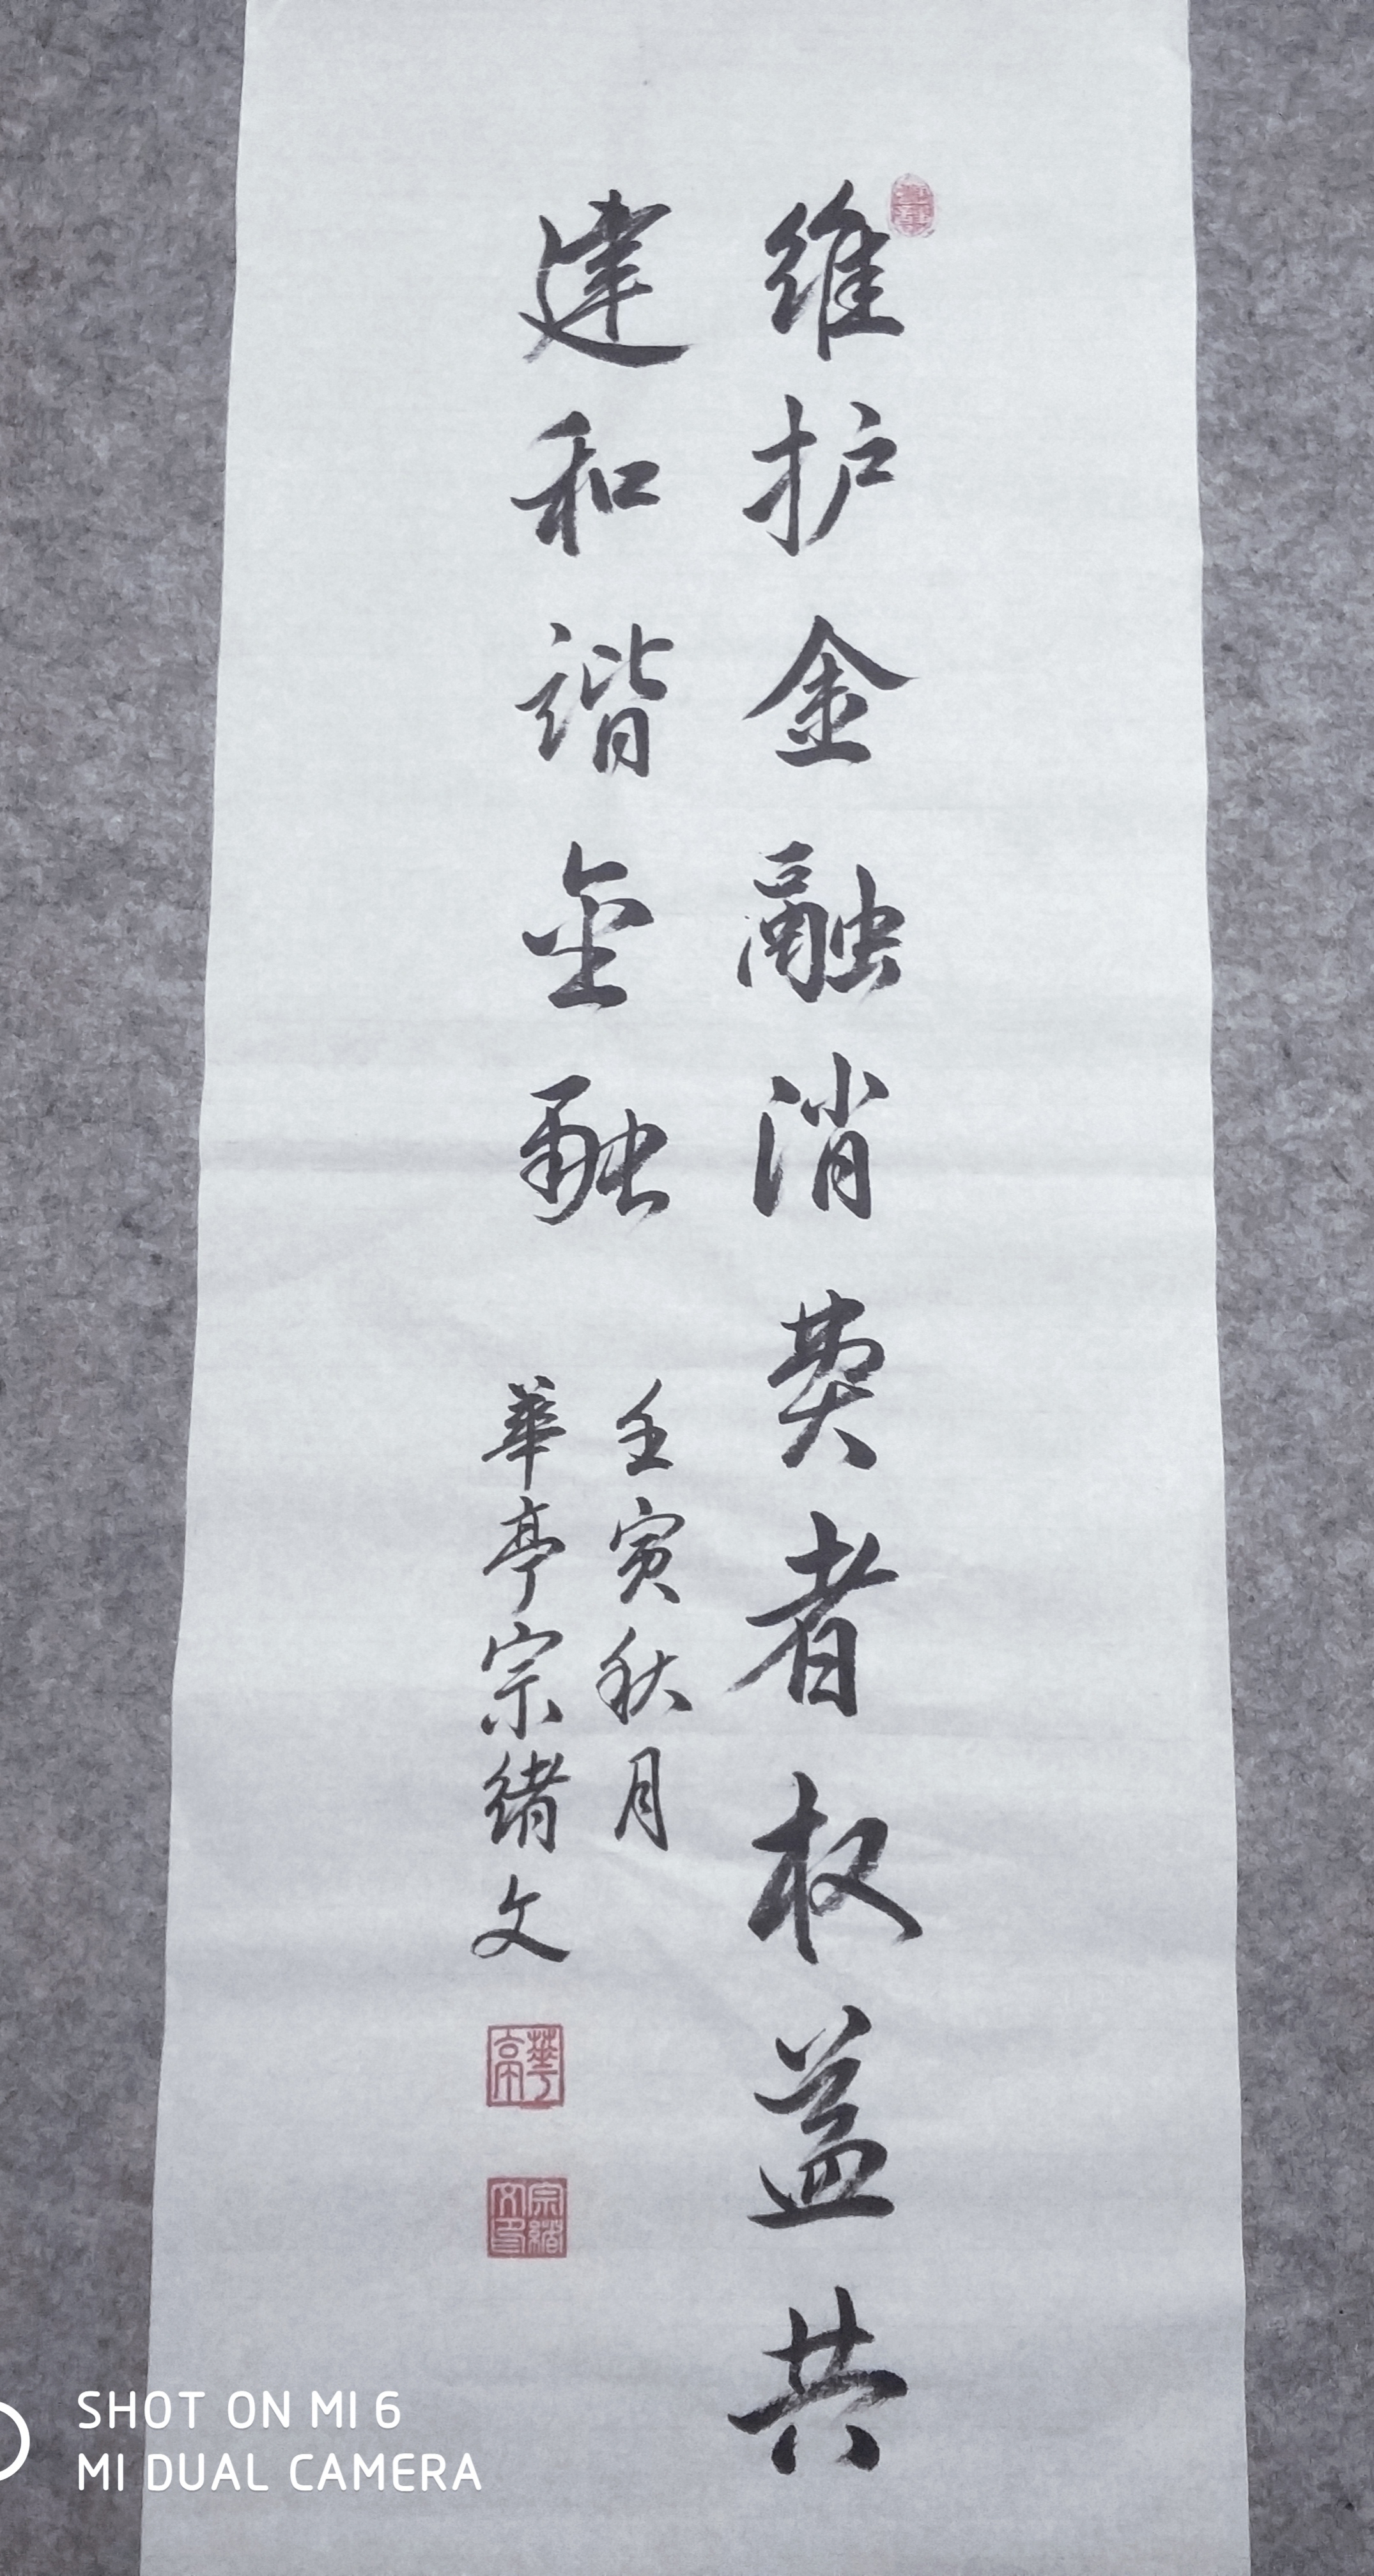 维护金融消费者权益共
建和谐金融
壬寅秋月
華亭宗绪文
華亭
宗绪文印
SHOT ON MI 6
MI DUAL CAMERA